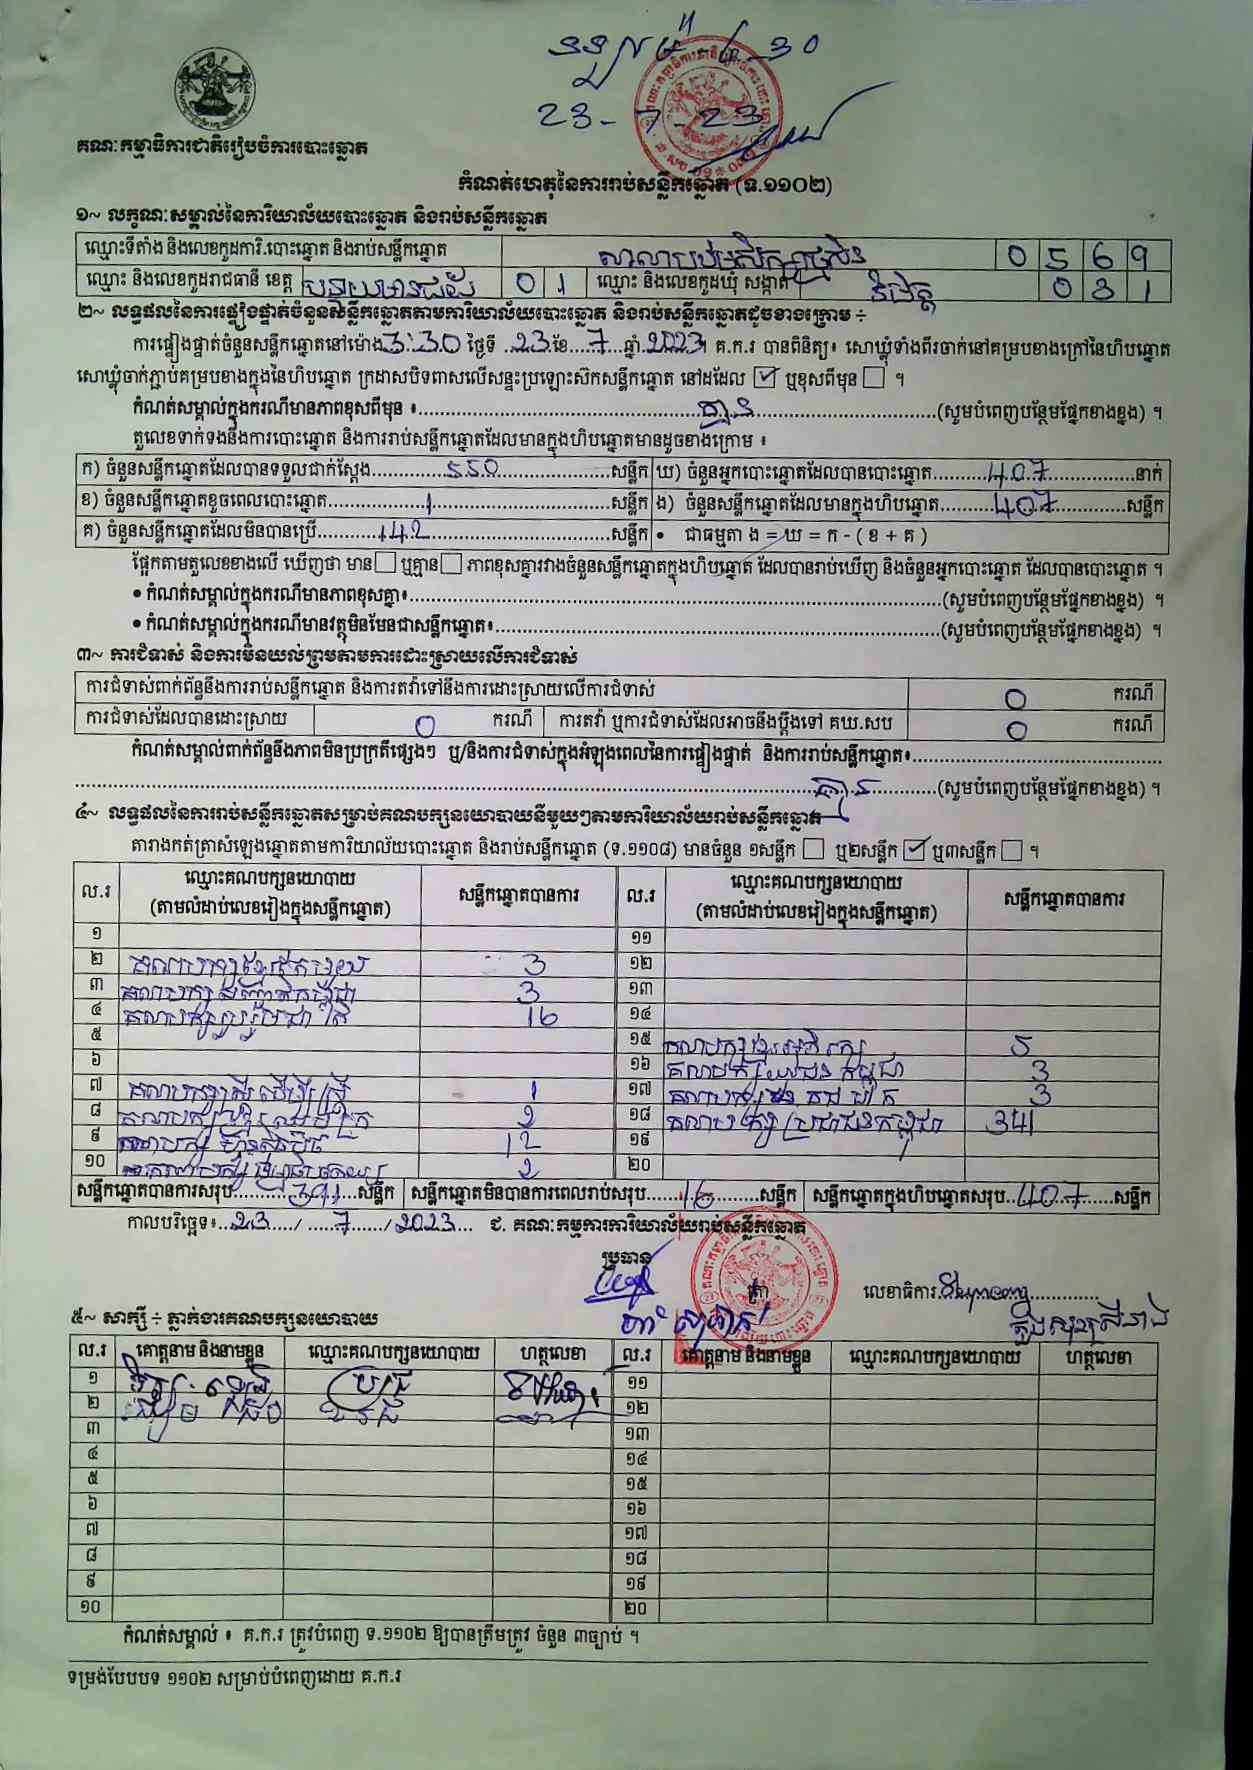 23-7-23
គណៈកម្មាធិការជាតិរៀបចំការបោះឆ្នោត
កំណត់ហេតុនៃការរាប់សន្លឹកឆ្នោត (ទ.១១០២)
១~ លក្ខណៈសម្គាល់នៃការិយាល័យបោះឆ្នោត និងរាប់សន្លឹកឆ្នោត
ឈ្មោះទីតាំង និងលេខកូដការិ.បោះឆ្នោត និងរាប់សន្លឹកឆ្នោត 0 5 6 9
ឈ្មោះ និងលេខកូដរាជធានី ខេត្ត បន្ទាយមានជ័យ 0 1 ឈ្មោះ និងលេខកូដឃុំ សង្កាត់ និមិត្ត 0 3 1
២~ លទ្ធផលនៃការផ្ទៀងផ្ទាត់ចំនួនសន្លឹកឆ្នោតតាមការិយាល័យបោះឆ្នោត និងរាប់សន្លឹកឆ្នោតដូចខាងក្រោម ÷
ការផ្ទៀងផ្ទាត់ចំនួនសន្លឹកឆ្នោតនៅម៉ោង 3:30 ថ្ងៃទី 23 ខែ 7 ឆ្នាំ 2023។ គ.ក.រ បានពិនិត្យ៖ សោឃ្លុំទាំងពីរចាក់នៅគម្របខាងក្រៅនៃហិបឆ្នោត
សោឃ្លុំចាក់ភ្ជាប់គម្របខាងក្នុងនៃហិបឆ្នោត ក្រដាសបិទពាសលើសន្ទះប្រឡោះស៊កសន្លឹកឆ្នោត នៅដដែល ☑ ឬខុសពីមុន ☐ ។
កំណត់សម្គាល់ក្នុងករណីមានភាពខុសពីមុន ៖ គ្មាន (សូមបំពេញបន្ថែមផ្នែកខាងខ្នង) ។
តួលេខទាក់ទងនឹងការបោះឆ្នោត និងការរាប់សន្លឹកឆ្នោតដែលមានក្នុងហិបឆ្នោតមានដូចខាងក្រោម ៖
ក) ចំនួនសន្លឹកឆ្នោតដែលបានទទួលជាក់ស្តែង 550 សន្លឹក ឃ) ចំនួនអ្នកបោះឆ្នោតដែលបានបោះឆ្នោត 407 នាក់
ខ) ចំនួនសន្លឹកឆ្នោតខូចពេលបោះឆ្នោត 1 សន្លឹក ង) ចំនួនសន្លឹកឆ្នោតដែលមានក្នុងហិបឆ្នោត 407 សន្លឹក
គ) ចំនួនសន្លឹកឆ្នោតដែលមិនបានប្រើ 142 សន្លឹក • ជាធម្មតា ង = ឃ = ក - ( ខ + គ )
ផ្អែកតាមតួលេខខាងលើ ឃើញថា មាន ☐ ឬគ្មាន ☐ ភាពខុសគ្នារវាងចំនួនសន្លឹកឆ្នោតក្នុងហិបឆ្នោត ដែលបានរាប់ឃើញ និងចំនួនអ្នកបោះឆ្នោត ដែលបានបោះឆ្នោត ។
• កំណត់សម្គាល់ក្នុងករណីមានភាពខុសគ្នា៖ (សូមបំពេញបន្ថែមផ្នែកខាងខ្នង) ។
• កំណត់សម្គាល់ក្នុងករណីមានវត្ថុមិនមែនជាសន្លឹកឆ្នោត៖ (សូមបំពេញបន្ថែមផ្នែកខាងខ្នង) ។
៣~ ការជំទាស់ និងការមិនយល់ព្រមតាមការដោះស្រាយលើការជំទាស់
ការជំទាស់ពាក់ព័ន្ធនឹងការរាប់សន្លឹកឆ្នោត និងការតវ៉ាទៅនឹងការដោះស្រាយលើការជំទាស់ 0 ករណី
ការជំទាស់ដែលបានដោះស្រាយ 0 ករណី ការតវ៉ា ឬការជំទាស់ដែលអាចនឹងប្តឹងទៅ គឃ.សប 0 ករណី
កំណត់សម្គាល់ពាក់ព័ន្ធនឹងភាពមិនប្រក្រតីផ្សេងៗ ឬ/និងការជំទាស់ក្នុងអំឡុងពេលនៃការផ្ទៀងផ្ទាត់ និងការរាប់សន្លឹកឆ្នោត៖
គ្មាន (សូមបំពេញបន្ថែមផ្នែកខាងខ្នង) ។
៤~ លទ្ធផលនៃការរាប់សន្លឹកឆ្នោតសម្រាប់គណបក្សនយោបាយនីមួយៗតាមការិយាល័យរាប់សន្លឹកឆ្នោត
តារាងកត់ត្រាសំឡេងឆ្នោតតាមការិយាល័យបោះឆ្នោត និងរាប់សន្លឹកឆ្នោត (ទ.១១០៨) មានចំនួន ១សន្លឹក ☐ ឬ២សន្លឹក ☑ ឬ៣សន្លឹក ☐ ។
ល.រ ឈ្មោះគណបក្សនយោបាយ (តាមលំដាប់លេខរៀងក្នុងសន្លឹកឆ្នោត) សន្លឹកឆ្នោតបានការ ល.រ ឈ្មោះគណបក្សនយោបាយ (តាមលំដាប់លេខរៀងក្នុងសន្លឹកឆ្នោត) សន្លឹកឆ្នោតបានការ
១ ១១
២ គណបក្សខ្មែរតែមួយ 3 ១២
៣ 3 ១៣
៤ គណបក្ស 16 ១៤
៥ ១៥ គណបក្សខ្មែរអភិរក្ស 5
៦ ១៦ គណបក្សយុវជនកម្ពុជា 3
៧ គណបក្សស្ត្រីដើម្បីស្ត្រី 1 ១៧ គណបក្ស 3
៨ គណបក្ស 2 ១៨ គណបក្សប្រជាជនកម្ពុជា 341
៩ គណបក្សហ៊្វុនស៊ិនប៉ិច 12 ១៩
១០ គណបក្សធម្មាធិបតេយ្យ 2 ២០
សន្លឹកឆ្នោតបានការសរុប 391 សន្លឹក សន្លឹកឆ្នោតមិនបានការពេលរាប់សរុប 16 សន្លឹក សន្លឹកឆ្នោតក្នុងហិបឆ្នោតសរុប 407 សន្លឹក
កាលបរិច្ឆេទ៖ 23 / 7 / 2023 ជ. គណៈកម្មការការិយាល័យរាប់សន្លឹកឆ្នោត
ប្រធាន
ត្រា
លេខាធិការ
៥~ សាក្សី ÷ ភ្នាក់ងារគណបក្សនយោបាយ
ល.រ គោត្តនាម និងនាមខ្លួន ឈ្មោះគណបក្សនយោបាយ ហត្ថលេខា ល.រ គោត្តនាម និងនាមខ្លួន ឈ្មោះគណបក្សនយោបាយ ហត្ថលេខា
១ ១១
២ ១២
៣ ១៣
៤ ១៤
៥ ១៥
៦ ១៦
៧ ១៧
៨ ១៨
៩ ១៩
១០ ២០
កំណត់សម្គាល់ ៖ គ.ក.រ ត្រូវបំពេញ ទ.១១០២ ឱ្យបានត្រឹមត្រូវ ចំនួន ៣ច្បាប់ ។
ទម្រង់បែបបទ ១១០២ សម្រាប់បំពេញដោយ គ.ក.រ